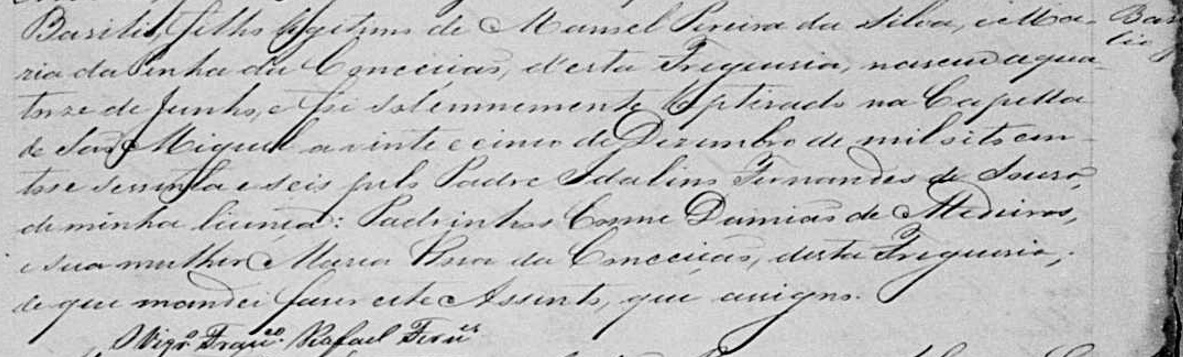 Basilio, filho legitimo de Manoel Pereira da Silva, e Ma-
ria da Penha da Conceicão, d'esta Freguesia, nasceu a qua-
torse de Junho, e foi solemnemente baptisado na Capella
de São Miguel a vinte e cinco de Dezembro de mil oito cen-
tos e sessenta e seis pelo Padre Idalino Fernandes de Sousa,
de minha licença: Padrinhos Cosme Damião de Medeiros,
e sua mulher Maria da Conceição, desta Freguesia;
de que mandei faser este Assento, que assigno.
O Vigrº Francº Rafael Ferʳ
Basi
lio